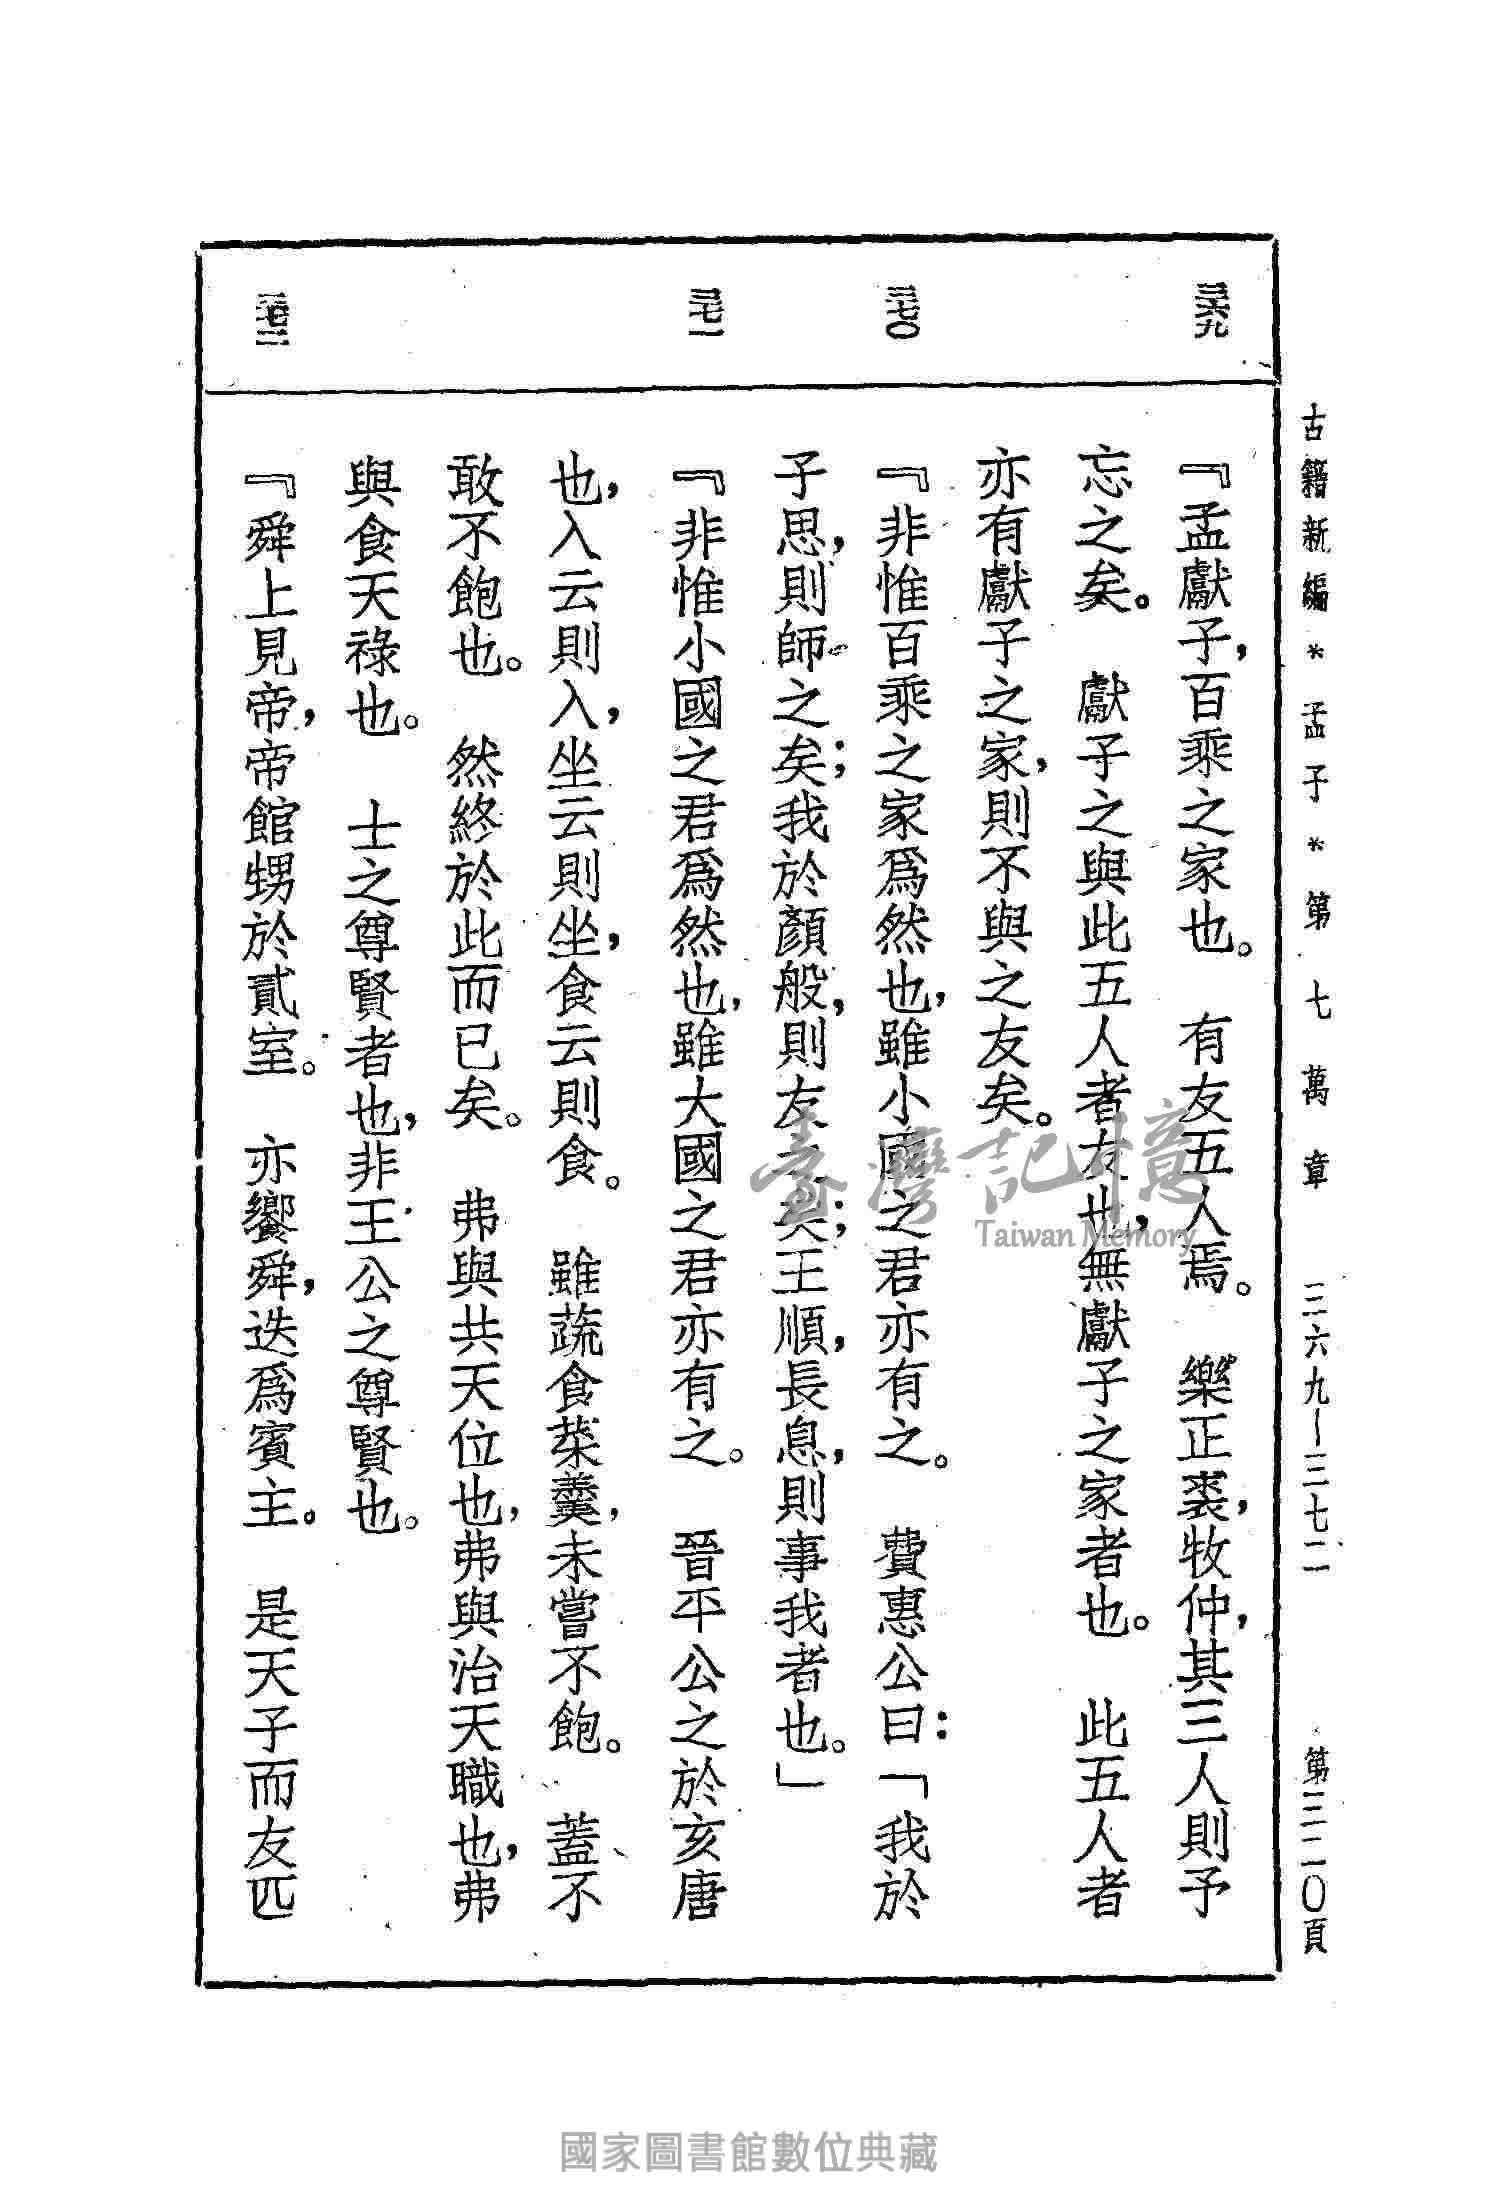 古籍新編*孟子*第七萬章 三六九—三七二 第三二〇頁
三六九
三七〇
三七一
三七二
『孟獻子，百乘之家也。 有友五人焉。 樂正裘，牧仲，其三人則予
忘之矣。 獻子之與此五人者友也，無獻子之家者也。 此五人者
亦有獻子之家，則不與之友矣。
『非惟百乘之家爲然也，雖小國之君亦有之。 費惠公曰：「我於
子思，則師之矣；我於顏般，則友之矣；王順，長息，則事我者也。」
『非惟小國之君爲然也，雖大國之君亦有之。 晉平公之於亥唐
也，入云則入，坐云則坐，食云則食。 雖蔬食菜羹，未嘗不飽。 蓋不
敢不飽也。 然終於此而已矣。 弗與共天位也，弗與治天職也，弗
與食天祿也。 士之尊賢者也，非王公之尊賢也。
『舜上見帝，帝館甥於貳室。 亦饗舜，迭爲賓主。 是天子而友匹
臺灣記憶
Taiwan Memory
國家圖書館數位典藏